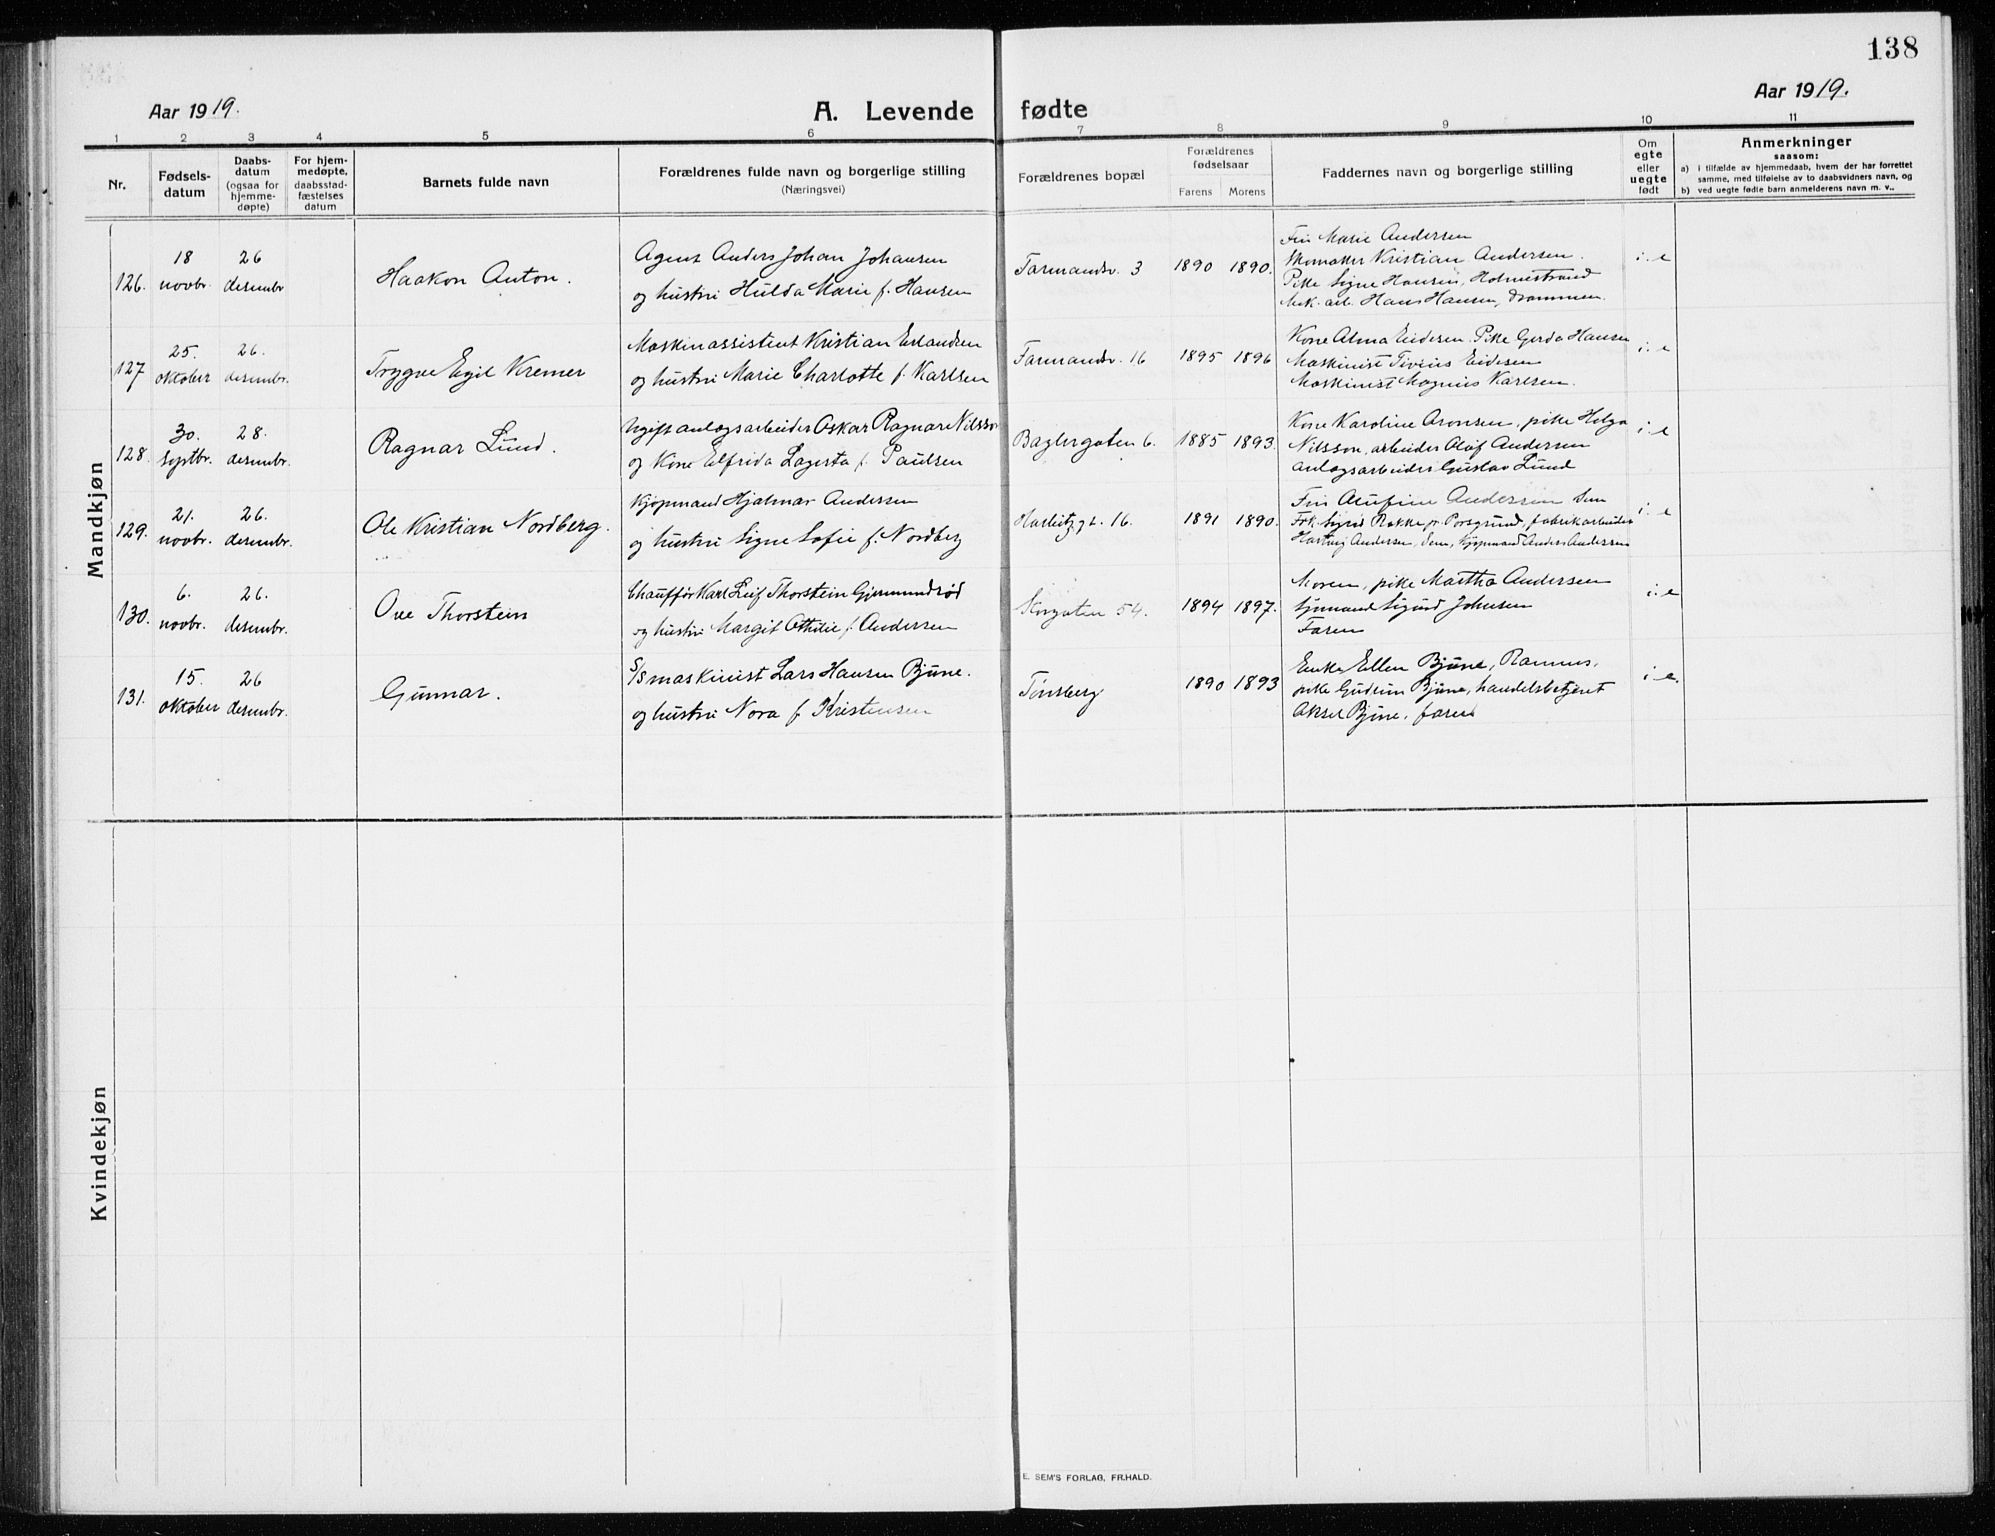 138
Aar 1919.
A. Levende fødte
Aar 1919.
1 2 3 4 5 6 7 8 9 10 11
Nr.
Fødsels-
datum
Daabs-
datum
(ogsaa for
hjemme-
døpte)
For hjem-
medøpte,
daabsstad-
fæstelses
datum
Barnets fulde navn
Forældrenes fulde navn og borgerlige stilling
(Næringsvei)
Forældrenes bopæl
Forældrenes
fødselsaar
Farens Morens
Faddernes navn og borgerlige stilling
Om
egte
eller
uegte
født
Anmerkninger
saasom:
a) i tilfælde av hjemmedaab, hvem der har forrettet
samme, med tilføielse av to daabsvidners navn, og
b) ved uegte fødte barn anmelderens navn m. v..
Mandkjøn
126.
18
novbr.
26
desembr
Haakon Anton.
Agent Anders Johan Johansen
og hustru Hulda Marie f. Hansen
Farmandsv. 3
1890 1890.
Fru Marie Andersen
Skomaker Kristian Andersen.
Pike Signe Hansen, Holmestrand
Mek. arb. Hans Hansen, Drammen.
i. e
127
25.
oktober
26.
desembr.
Trygve Egil Kremer
Maskinassistent Kristian Erlandsen
og hustru Marie Charlotte f. Karlsen
Farmandsv. 16
1895 1896
Kone Alma Eidesen, Pike Gerda Hansen
Maskinist Eidesen
Maskinist Magnus Karlsen.
i. e
128.
30.
septbr.
28.
desembr.
Ragnar Lund.
Ugift anlægsarbeider Oskar Ragnar Nilsson
og Kone Elfrida Lagerta f. Paulsen
Baglergaten 6.
1885 1893.
Kone Karoline Aronsen, pike Helga
Nilsson, arbeider Olaf Andersen
anlægsarbeider Gustav Lund
i. e
129.
21.
novbr.
26.
desembr.
Ole Kristian Nordberg.
Kjøpmand Hjalmar Andersen
og hustru Signe Sofie f. Nordberg
Harbitzgt. 16.
1891 1890.
Fru Andersen Sem
Frk. Sigrid Rakke pr. Porsgrund, fabrikarbeider
Hartvig Andersen, Sem, Kjøpmand Anders Andersen
i. e
130.
6.
novbr.
26.
desembr.
Ove Thorstein
Chauffør Karl Leif Thorstein Gjermundrød
og hustru Margit Othilie f. Andersen
Storgaten 54.
1894 1897.
Moren, pike Martha Andersen
Sjømand Sigurd Johnsen
Faren
i. e
131.
15.
oktober
26
desembr.
Gunnar.
S/S maskinist Lars Hansen Bjune.
og hustru Nora f. Kristensen
Tønsberg
1890 1893
Enke Ellen Bjune, Ramnes,
pike Gudrun Bjune, handelsbetjent
Aksel Bjune, faren
i. e.
Kvindekjøn
E. SEM'S FORLAG, FR.HALD.